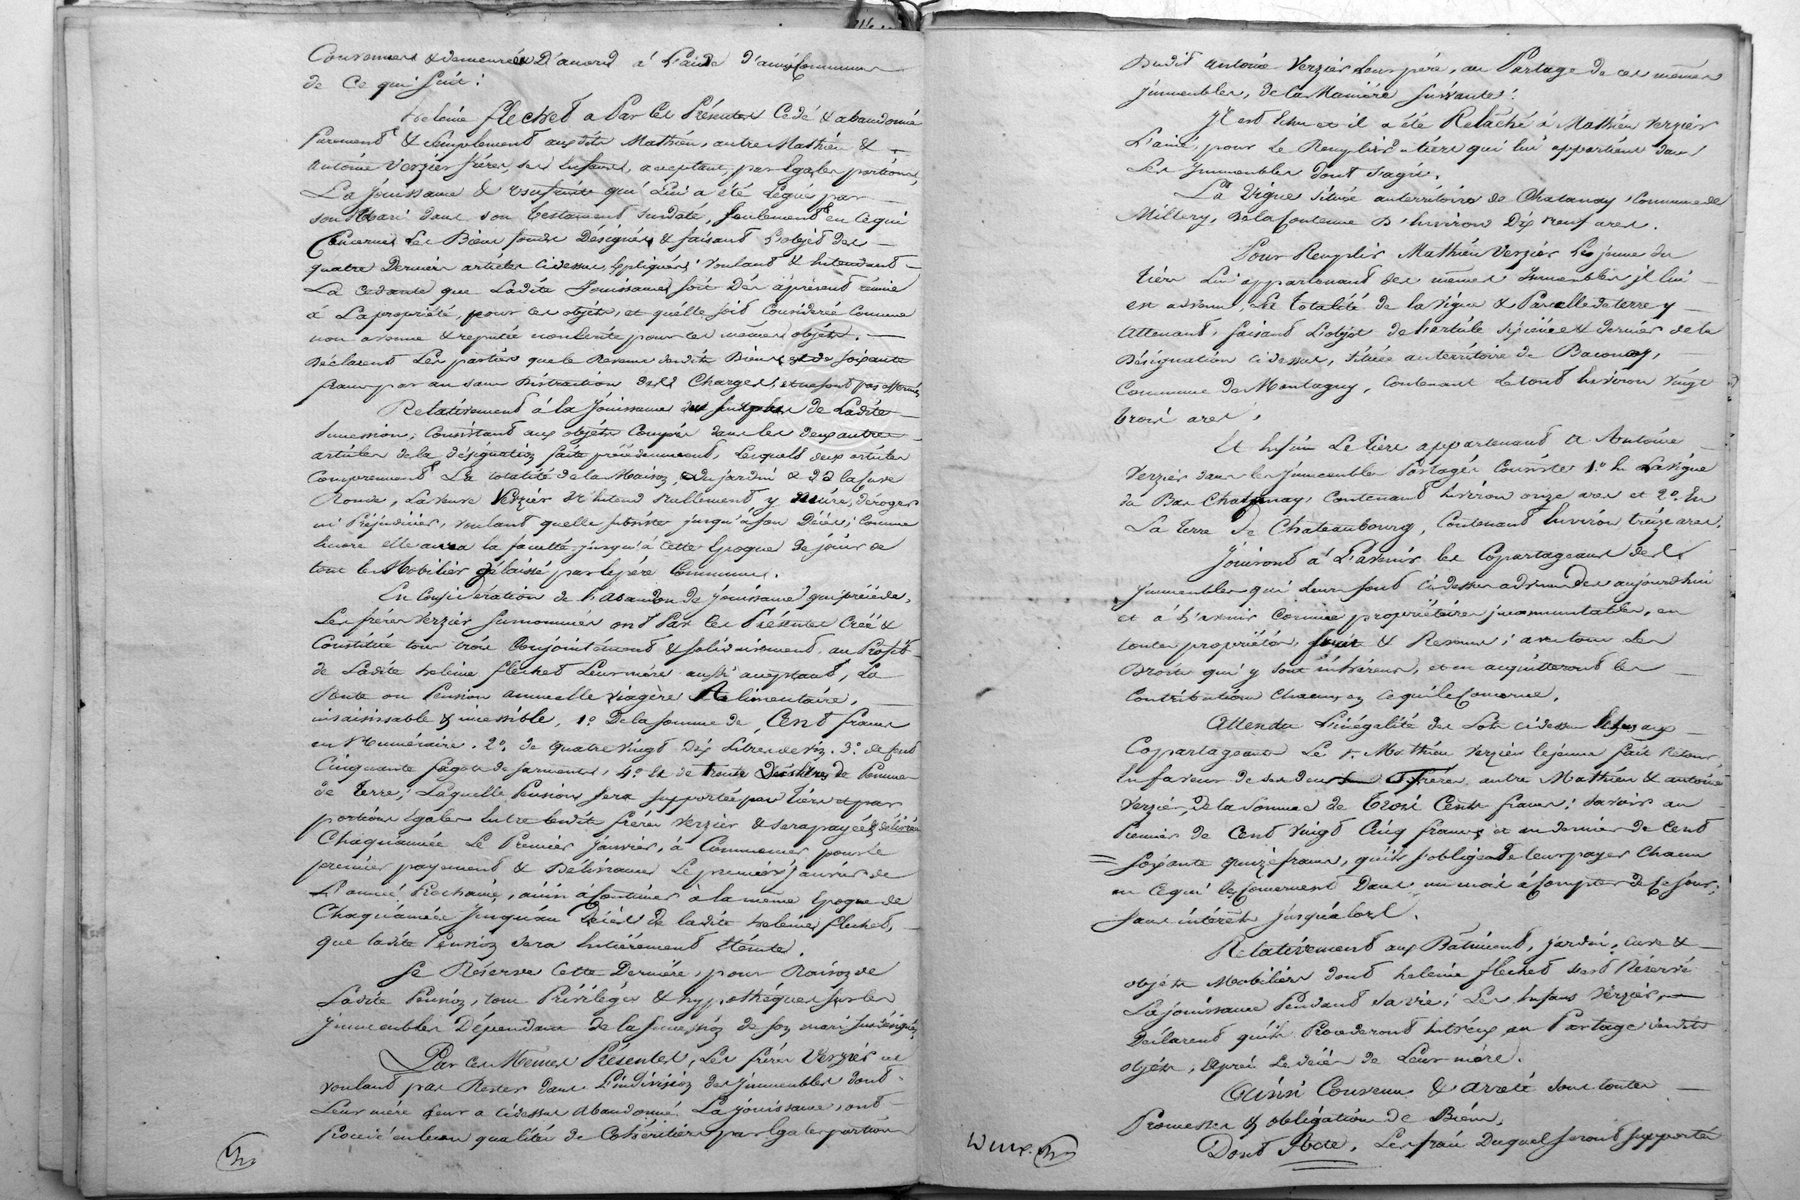 Convenus & demeurés D'acord à L'aide d'aux Communs
de Ce qui Suit:
helenie flechet a Par Ces Présentes Cédé & abandonné
purement & Simplement auxdits Mathieu, autre Mathieu &
antoine Verzier frères, ses Enfans, acceptant, par Egales portions,
La Jouissance & usufruit qui Lui a été Légué par
son Mari dans son testament Susdaté, Seulement en Ce qui
Concerne Les Biens fonds Désignés & faisant L'objet des
quatre Derniers articles Cidessus Expliqués; Voulant & Entendant
La cedante que Ladite Jouissance soit dès àprésent réunie
à La propriété, pour Ces objets, et quelle soit Considerée Comme
non avenue & reputée non Ecrite pour Les mêmes objets.
Déclarent Les parties que le Revenu desdits Biens est de soixante
francs par an sans Distraction des Charges, et ne sont pas affermés
Relativement à la Jouissance du Surplus de Ladite
Succession, Consistant aux objets Compris dans les deux autres
articles de la désignation faite précédemment, Lesquels deux articles
Comprennent La totalité de la Maison, du jardin & de la Cuve
Ronde, La Veuve Verzier N'Entend Nullement y Nuire, déroger
ni Préjudicier, voulant quelle subsiste jusqu'à son Décès; Comme
Encore elle aura la faculté jusqu'à Cette Epoque de jouir de
tout le Mobilier délaissé par le père Commun.
En Considération de l'abandon de Jouissance qui précède,
Les frères Verzier Surnommés ont Par Ces Présentes Créé &
Constitué tous trois Conjointement & Solidairement, au Profit
de Ladite helenie flechet Leur mère aussi acceptant, La
Rente ou Pension annuelle viagère Alimentaire,
insaisissable & incessible, 1º De la Somme de Cent francs
en Numéraire. 2º. de quatre vingt Dix Litres de vin. 3º. de Cent
Cinquante fagots de sarments, 4º Et de trente Décalitres de Pommes
de terre; Laquelle Pension sera supportée par tiers et par
portions Egales Entre lesdits frères Verzier & sera payée & délivrée
Chaqu'année Le Premier Janvier, à Commencer pour le
premier payement & Délivrance Le premier Janvier de
L'année Prochaine, ainsi à Continuer à la même Epoque de
Chaqu'année Jusqu'au Décès de ladite helenie flechet,
que ladite Pension sera Entièrement Eteinte.
Se Réserve Cette Dernière, pour Raison de
Ladite Pension, tous Privilèges & hypothèques sur les
Immeubles Dépendans de la succession de son mari susdésigné,
Par Ces Mêmes Présentes, Les frères Verzier ne
voulant pas Rester dans L'indivision des Immeubles dont
Leur mère Leur a Cidessus Abandonné La jouissance, ont
Procédé en leur qualité de Cohéritiers par Egales portions
Dudit antoine Verzier Leur père, au Partage de ces mêmes
Immeubles, de la Manière suivante:
Il est Echu et il a été Relaché à Mathieu Verzier
L'aîné, pour Le Remplir du tiers qui lui appartient dans
Les Immeubles dont s'agit,
La Vigne située au territoire de Chatanay, Commune de
Millery, De la Contenue D'Environ Dix neuf ares.
Pour Remplir Mathieu Verzier Le jeune du
tiers Lui appartenant des mêmes Immeubles il lui
est advenu, La totalité de la vigne & Parcelle de terre y
attenant, faisant L'objet de l'article sixième & dernier de la
Désignation cidessus, Située au territoire de Baconay,
Commune de Montagny, Contenant Le tout Environ vingt
trois ares.
Et Enfin Le tiers appartenant à Antoine
Verzier dans les Immeubles Partagés Consiste 1.º En La vigne
du Bas Chatanay, Contenant Environ onze ares et 2.º En
La terre de Chateaubourg, Contenant Environ treize ares.
Jouiront à L'avenir les Copartageans des
Immeubles qui Leur sont Cidessus advenus dès aujourdhui
et à L'avenir Comme propriétaires incommutables, en
toute propriété, fruits & Revenus; avec tous Les
Droits qui y sont inhérens, et en acquitteront Les
Contributions Chacun en ce qui Le Concerne.
Attendu L'inégalité des Lots Cidessus Echus aux
Copartageants Le S. Mathieu Verzier Lejeune fait Retour,
En faveur de ses deux frères autre Mathieu & antoine
Verzier, de la Somme de trois Cents francs; savoir au
Premier de Cent Vingt Cinq francs et au dernier de Cent
Soixante quinze francs, qu'il s'oblige de leur payer Chacun
en Ce qui les Concernent Dans un mois à Compter de Ce Jour;
Sans intérêts jusqu'alors.
Relativement aux Bâtiment, jardin, Cuve &
objets Mobiliers dont helenie flechet s'est Réservé
La jouissance Pendant sa vie; Les Enfans Verzier,
Déclarent qu'ils Procederont Entr'eux au Partage desdits
objets, après Le décès de Leur mère.
Ainsi Convenu & arreté sous toutes
Promesses & obligations de Biens.
Dont Acte, Les frais Duquel seront supportés